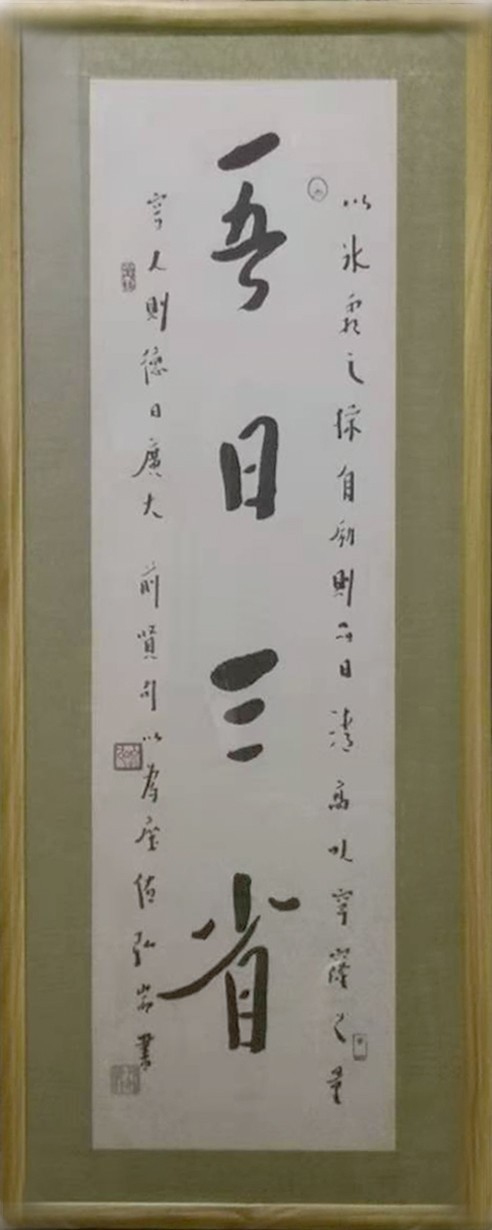 以冰霜之操自励則品日清高以穹窿之量
吾日三省
容人則德日廣大 前賢句以為座 弘 書